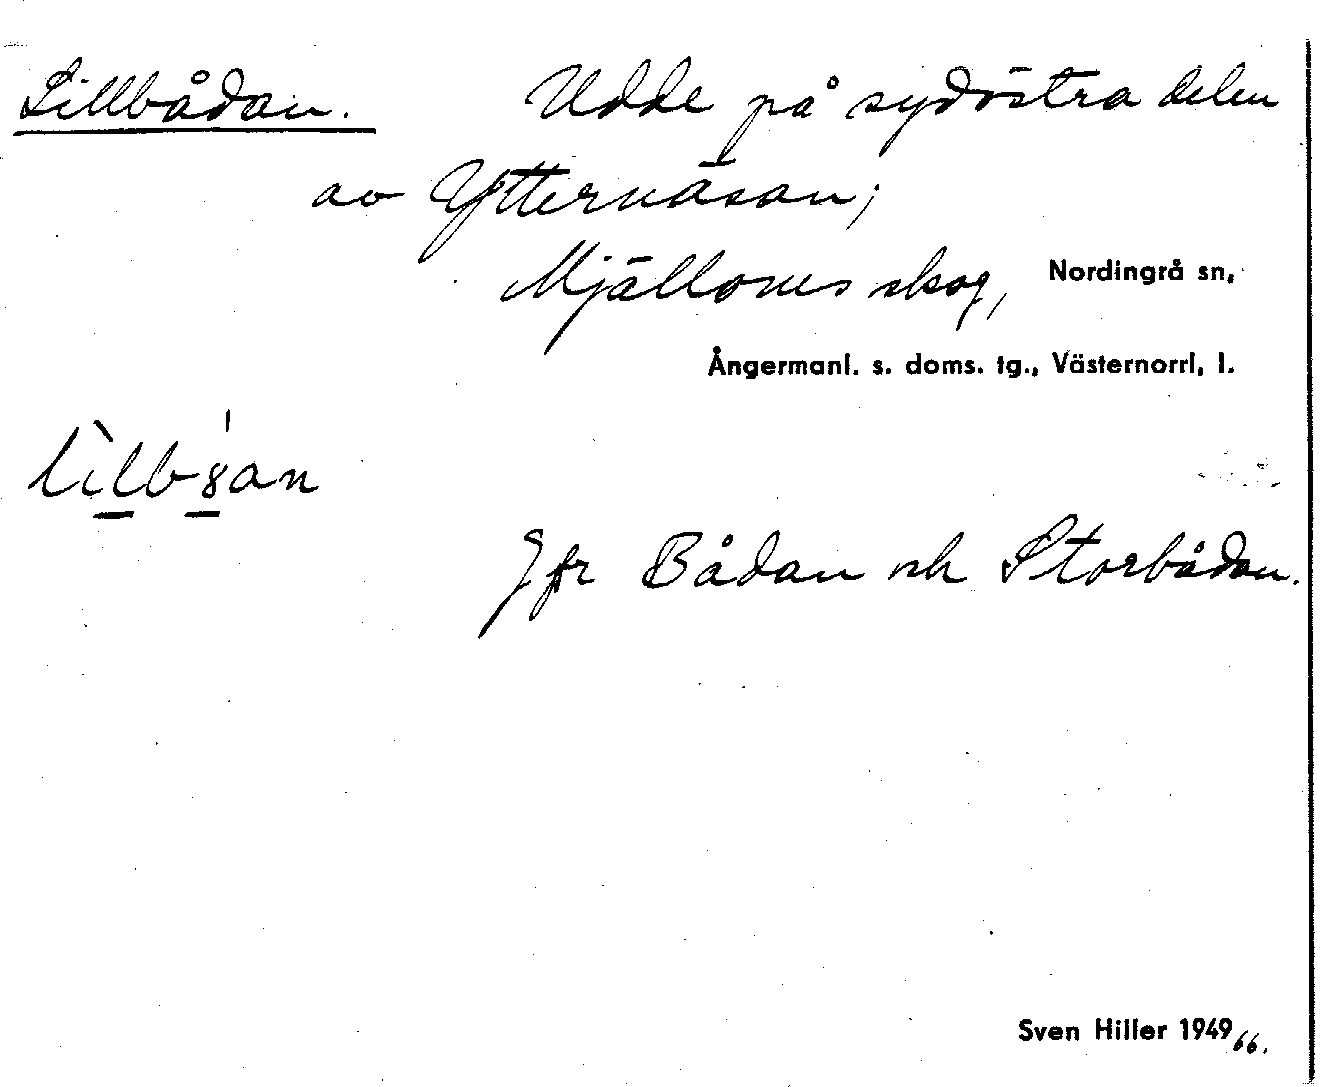 Lillbådan. Udde på sydöstra delen
av Ytternäsan;
Mjälloms skog, Nordingrå sn,
Ångermanl. s. doms. tg., Västernorrl. l.
Jfr Bådan och Storbådan.
Sven Hiller 1949 66.